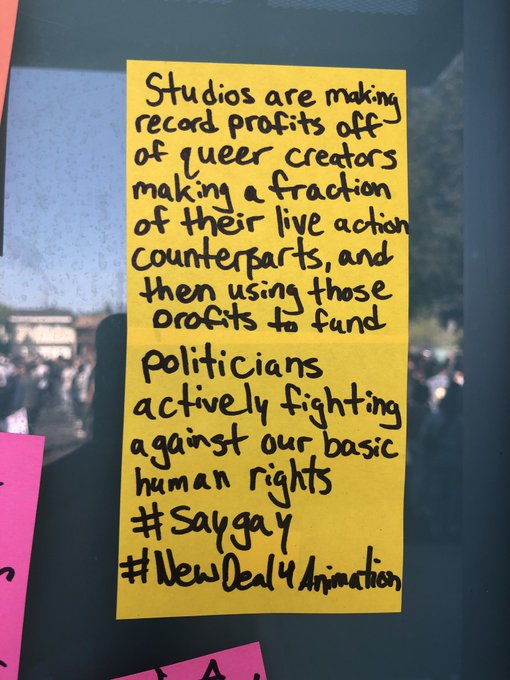 Studios are making
record profits off
of queer creators
making a fraction
of their live action
counterparts, and
then using those
profits to fund
politicians
actively fighting
against our basic
human rights
#Saygay
#NewDeal4Animation